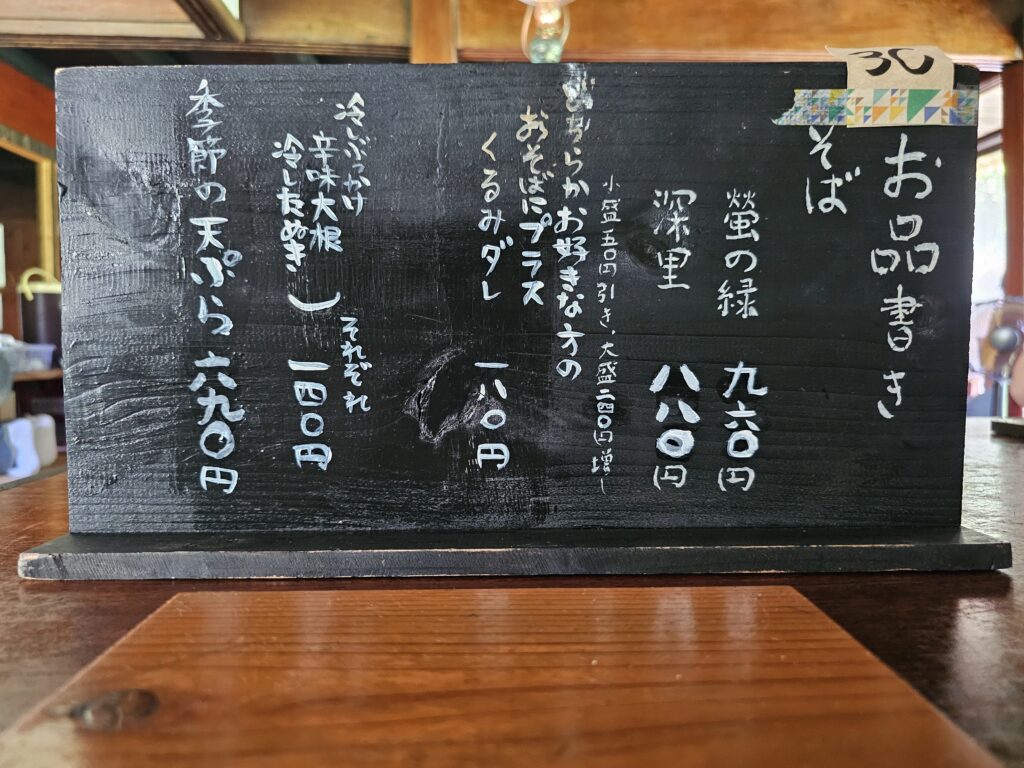 お品書き
そば
螢の緑 九六〇円
深里 八八〇円
小盛五〇円引き、大盛二四〇円増し
どちらかお好きな方の
おそばにプラス
くるみダレ 一八〇円
冷しぶっかけ
辛味大根
冷したぬき
それぞれ
一四〇円
季節の天ぷら 六九〇円